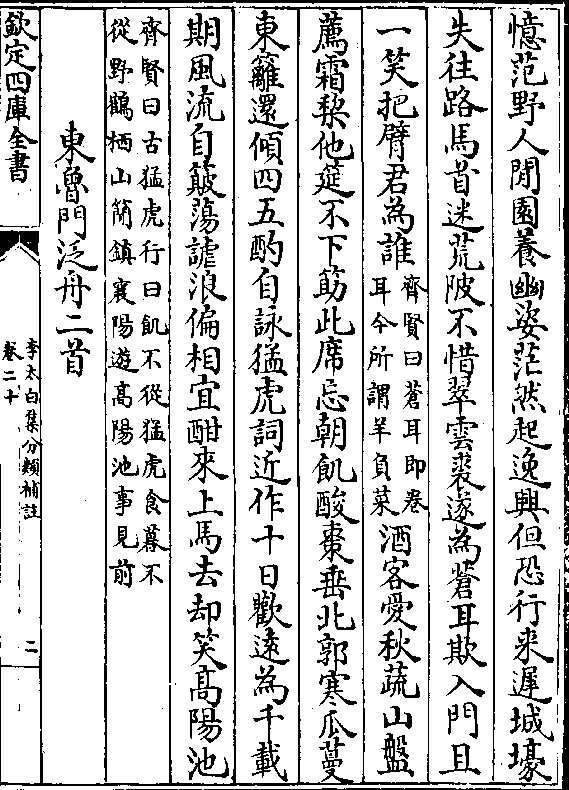 憶范野人閒園養幽姿茫然起逸興但恐行来遲城壕
失往路馬首迷荒陂不惜翠雲裘遂為蒼耳欺入門且
一笑把臂君為誰齊賢曰蒼耳即卷耳今所謂羊負菜酒客愛秋蔬山盤
薦霜棃他筵不下筯此席忘朝飢酸棗垂北郭寒瓜蔓
東籬還傾四五酌自詠猛虎詞近作十日歡遠為千載
期風流自簸蕩謔浪偏相宜酣來上馬去却笑髙陽池
齊賢曰古猛虎行曰飢不從猛虎食暮不
從野鵲栖山簡鎮襄陽遊髙陽池事見前
東魯門泛舟二首
欽定四庫全書
李太白集分類補註
卷二十
二